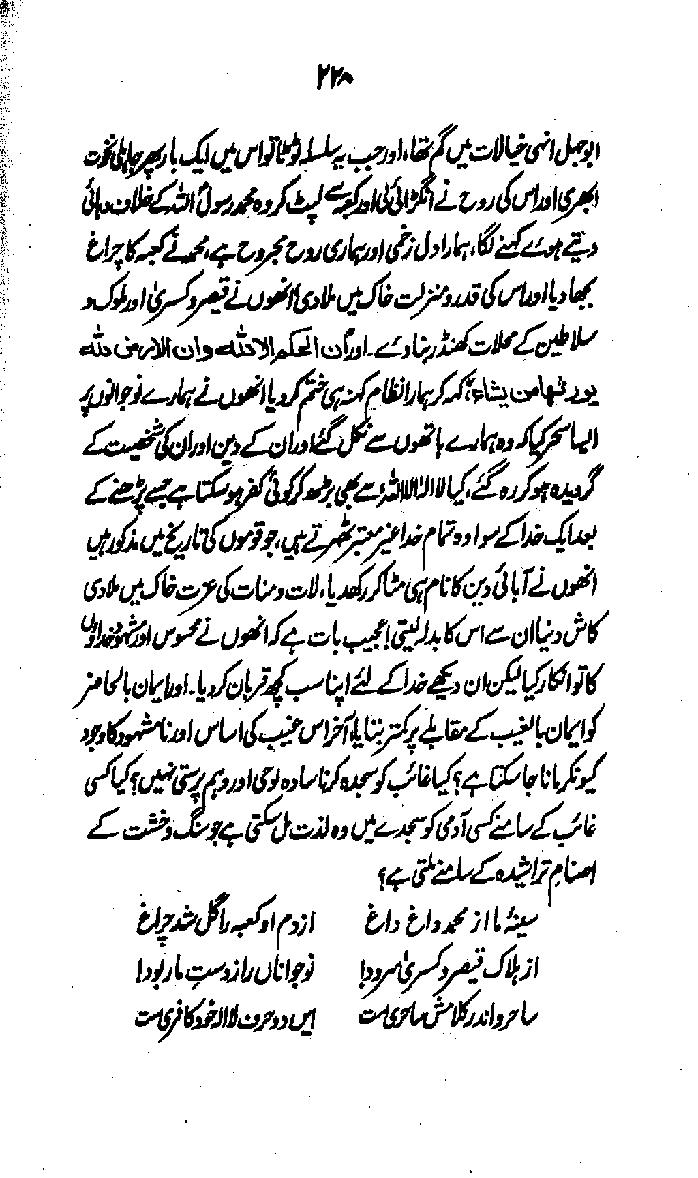 ۲۲۸
ابوجہل انہی خیالات میں گم تھا، اور جب یہ سلسلہ ٹوٹا تو اس میں ایک بار پھر جاہلی نخوت
ابھری اور اس کی روح نے انگڑائی لی اور کعبہ سے لپٹ کر وہ محمد رسول اللہ کے خلاف دہائی
دیتے ہوئے کہنے لگا، ہمارا دل زخمی اور ہماری روح مجروح ہے، محمد نے کعبہ کا چراغ
بجھا دیا اور اس کی قدر و منزلت خاک میں ملا دی! انھوں نے قیصر و کسریٰ اور ملوک و
سلاطین کے محلات کھنڈر بنا دئے۔ اور ان الحکم الا للہ و ان الارض للہ
یورثہا من یشاء، کہہ کر ہمارا نظام کہنہ ہی ختم کر دیا انھوں نے ہمارے نوجوانوں پر
ایسا سحر کیا کہ وہ ہمارے ہاتھوں سے نکل گئے اور ان کے دین اور ان کی شخصیت کے
گرویدہ ہو کر رہ گئے، کیا لا الٰہ الا اللہ سے بھی بڑھ کر کوئی کفر ہو سکتا ہے جسے پڑھنے کے
بعد ایک خدا کے سوا وہ تمام خدا غیر معتبر ٹھہرتے ہیں، جو قوموں کی تاریخ میں مذکور ہیں
انھوں نے آبائی دین کا نام ہی مٹا کر رکھدیا، لات و منات کی عزت خاک میں ملا دی
کاش دنیا ان سے اس کا بدلہ لیتی! عجیب بات ہے کہ انھوں نے محسوس اور مشہود خداؤں
کا تو انکار کیا لیکن ان دیکھے خدا کے لئے اپنا سب کچھ قربان کر دیا۔ اور ایمان بالحاضر
کو ایمان بالغیب کے مقابلے پر کمتر بنایا، آخر اس غیب کی اساس اور نا مشہود کا وجود
کیونکر مانا جا سکتا ہے؟ کیا غائب کو سجدہ کرنا سادہ لوحی اور وہم پرستی نہیں؟ کیا کسی
غائب کے سامنے کسی آدمی کو سجدے میں وہ لذت مل سکتی ہے جو سنگ و خشت کے
اصنام تراشیدہ کے سامنے ملتی ہے؟
سینۂ ما از محمد داغ داغ از دم او کعبہ را گل شد چراغ
از ہلاک قیصر و کسریٰ سرود! نوجواناں را ز دست ما ربود!
ساحر و اندر کلامش ساحری است ایں دو حرف لا الٰہ خود کافری است